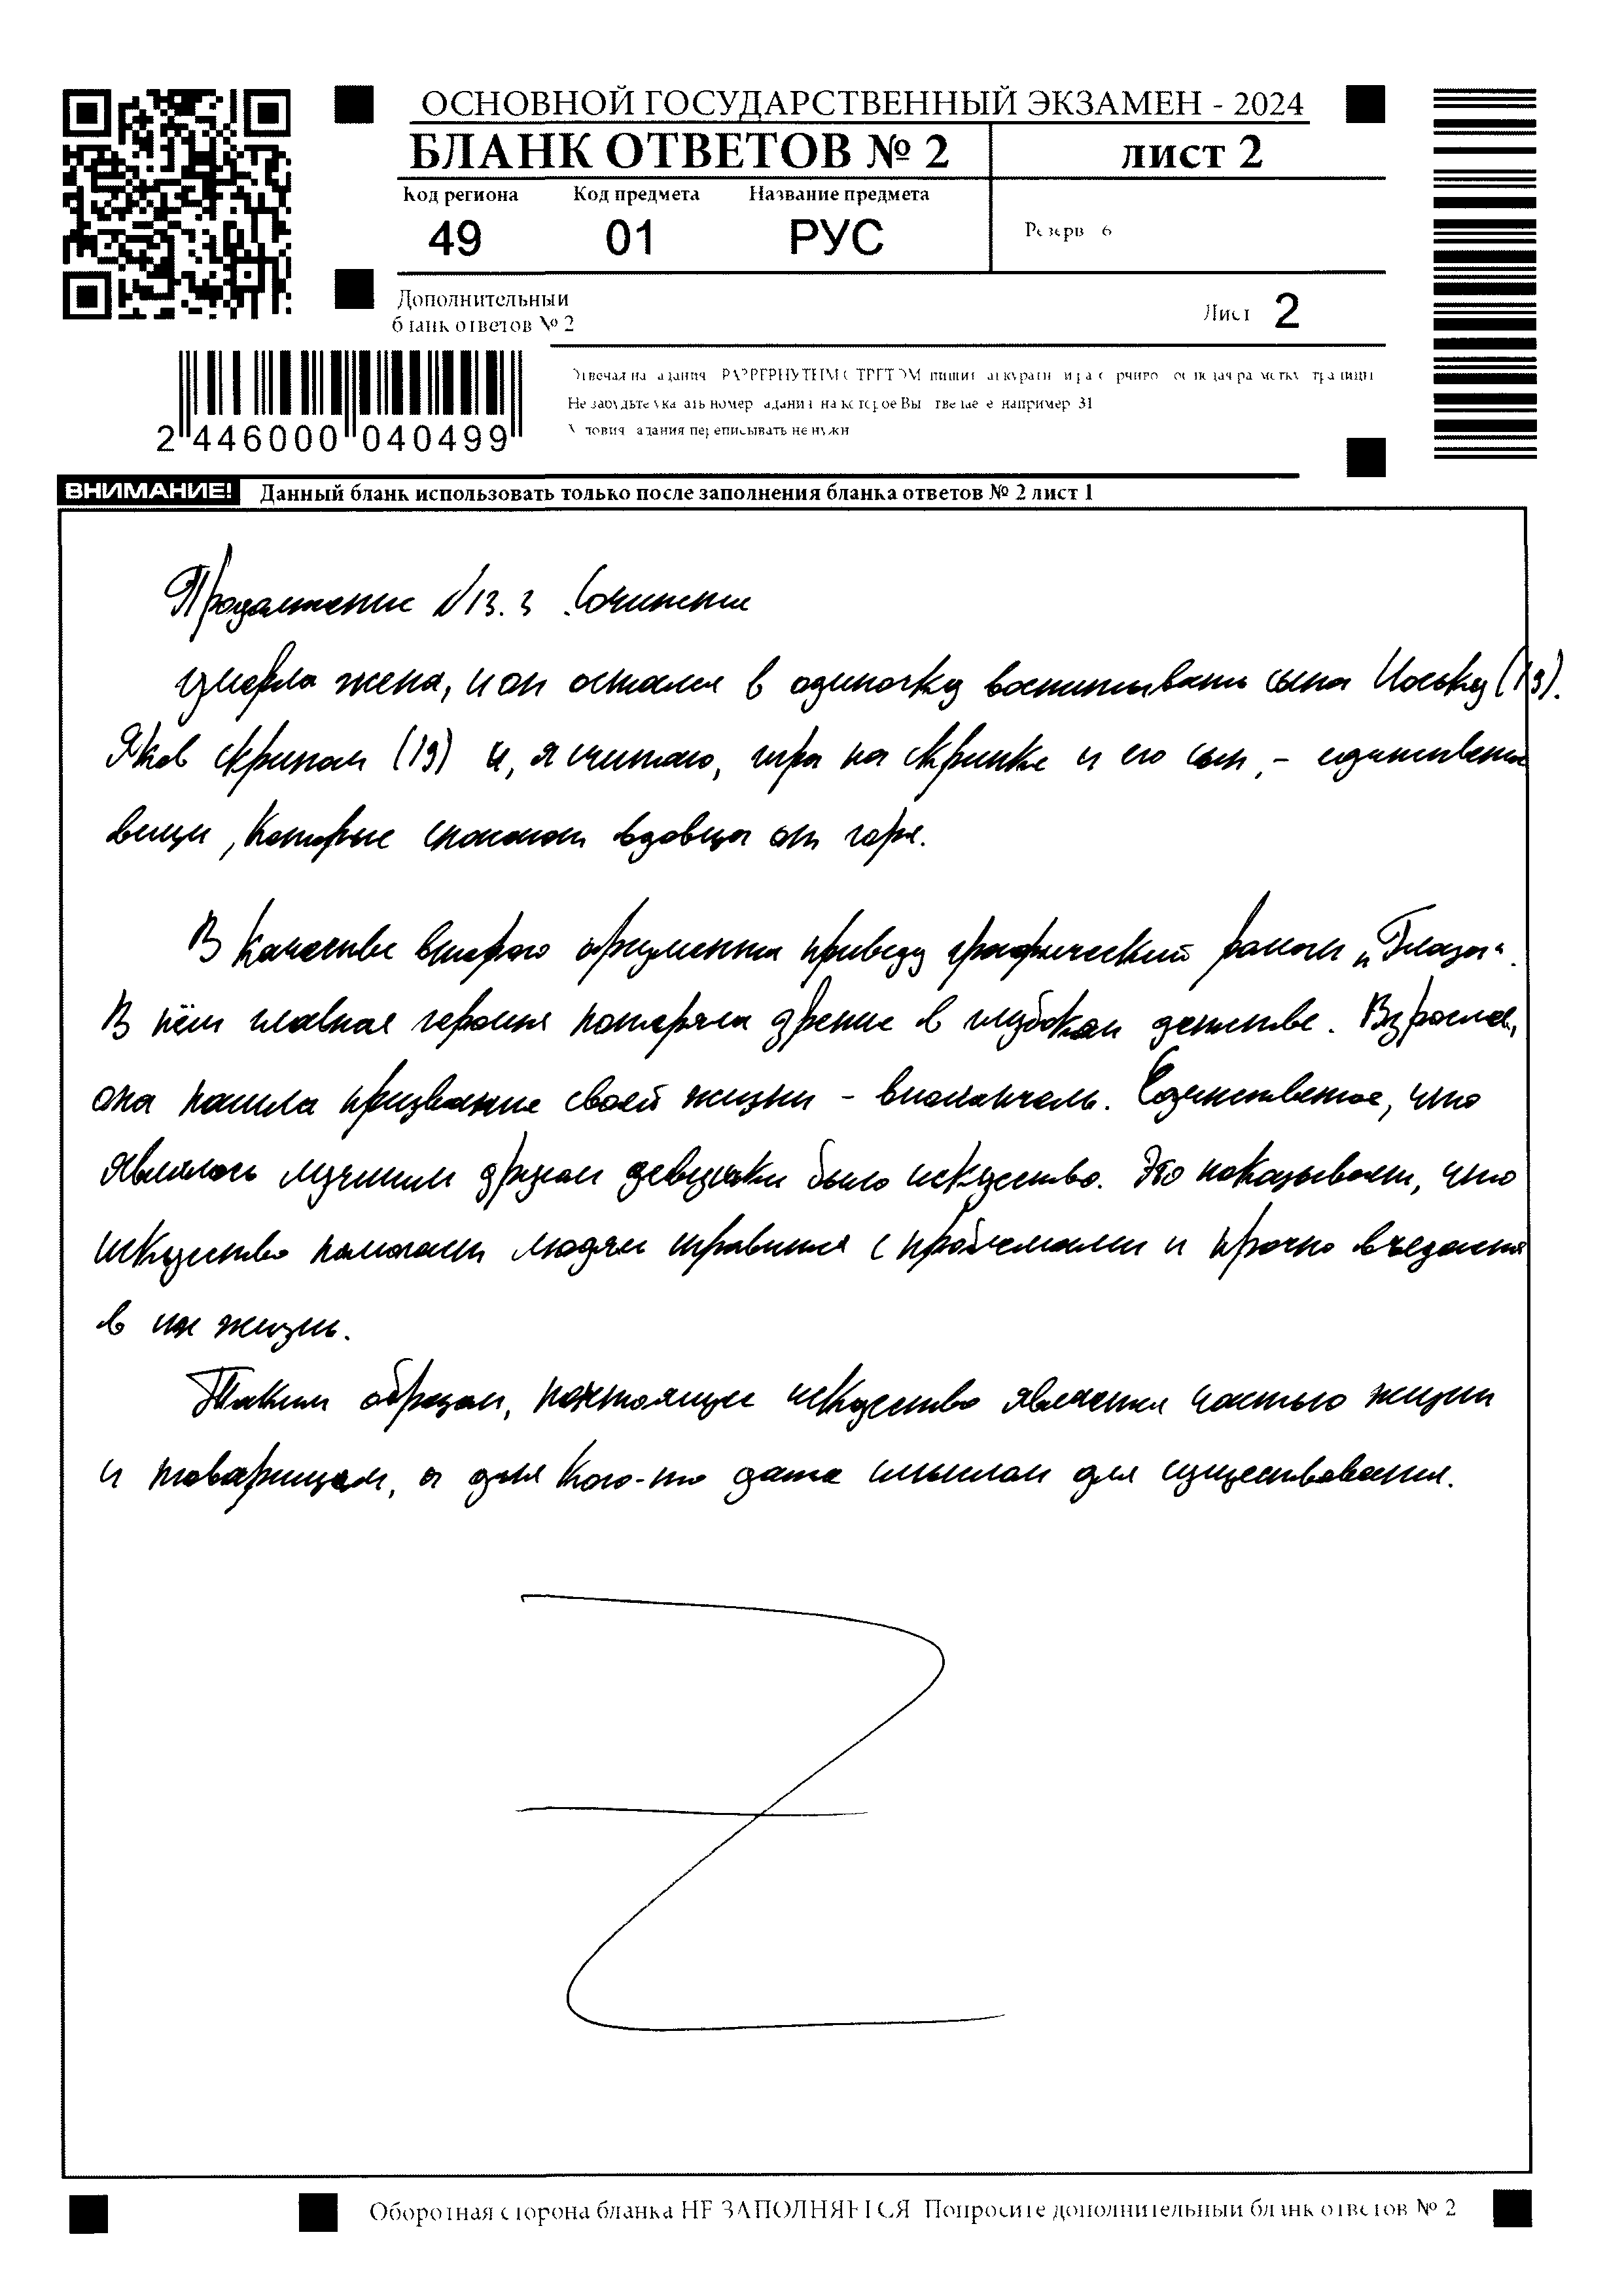 ОСНОВНОЙ ГОСУДАРСТВЕННЫЙ ЭКЗАМЕН - 2024
БЛАНК ОТВЕТОВ № 2 лист 2
Код региона Код предмета Название предмета
49 01 РУС
Резерв 6
Дополнительный
бланк ответов № 2
Лист 2
Отвечая на задания РАЗВЕРНУТЫМ ОТВЕТОМ пишите аккуратно и разборчиво соблюдая разметку страницы
Не забудьте указать номер задания на которое Вы отвечаете например 31
Условия задания переписывать не нужно
2 446000 040499
ВНИМАНИЕ! Данный бланк использовать только после заполнения бланка ответов № 2 лист 1
Продолжение №13.3 Сочинение
умерла жена, и он остался в одиночку воспитывать сына Иоську (13).
Яков скрипач (19) и, я считаю, игра на скрипке и его сын, - единственные
вещи, которые спасают вдовца от горя.
В качестве второго аргумента приведу графический роман „Глазы“.
В нём главная героиня потеряла зрение в глубоком детстве. Взрослея,
она нашла призвание своей жизни - виолончель. Единственное, что
являлось лучшим другом девушки было искусство. Это показывает, что
искусство помогает людям справится с проблемами и прочно въедается
в их жизнь.
Таким образом, настоящее искусство является частью жизни
и товарищем, а для кого-то даже смыслом для существования.
Оборотная сторона бланка НЕ ЗАПОЛНЯЕТСЯ Попросите дополнительный бланк ответов № 2